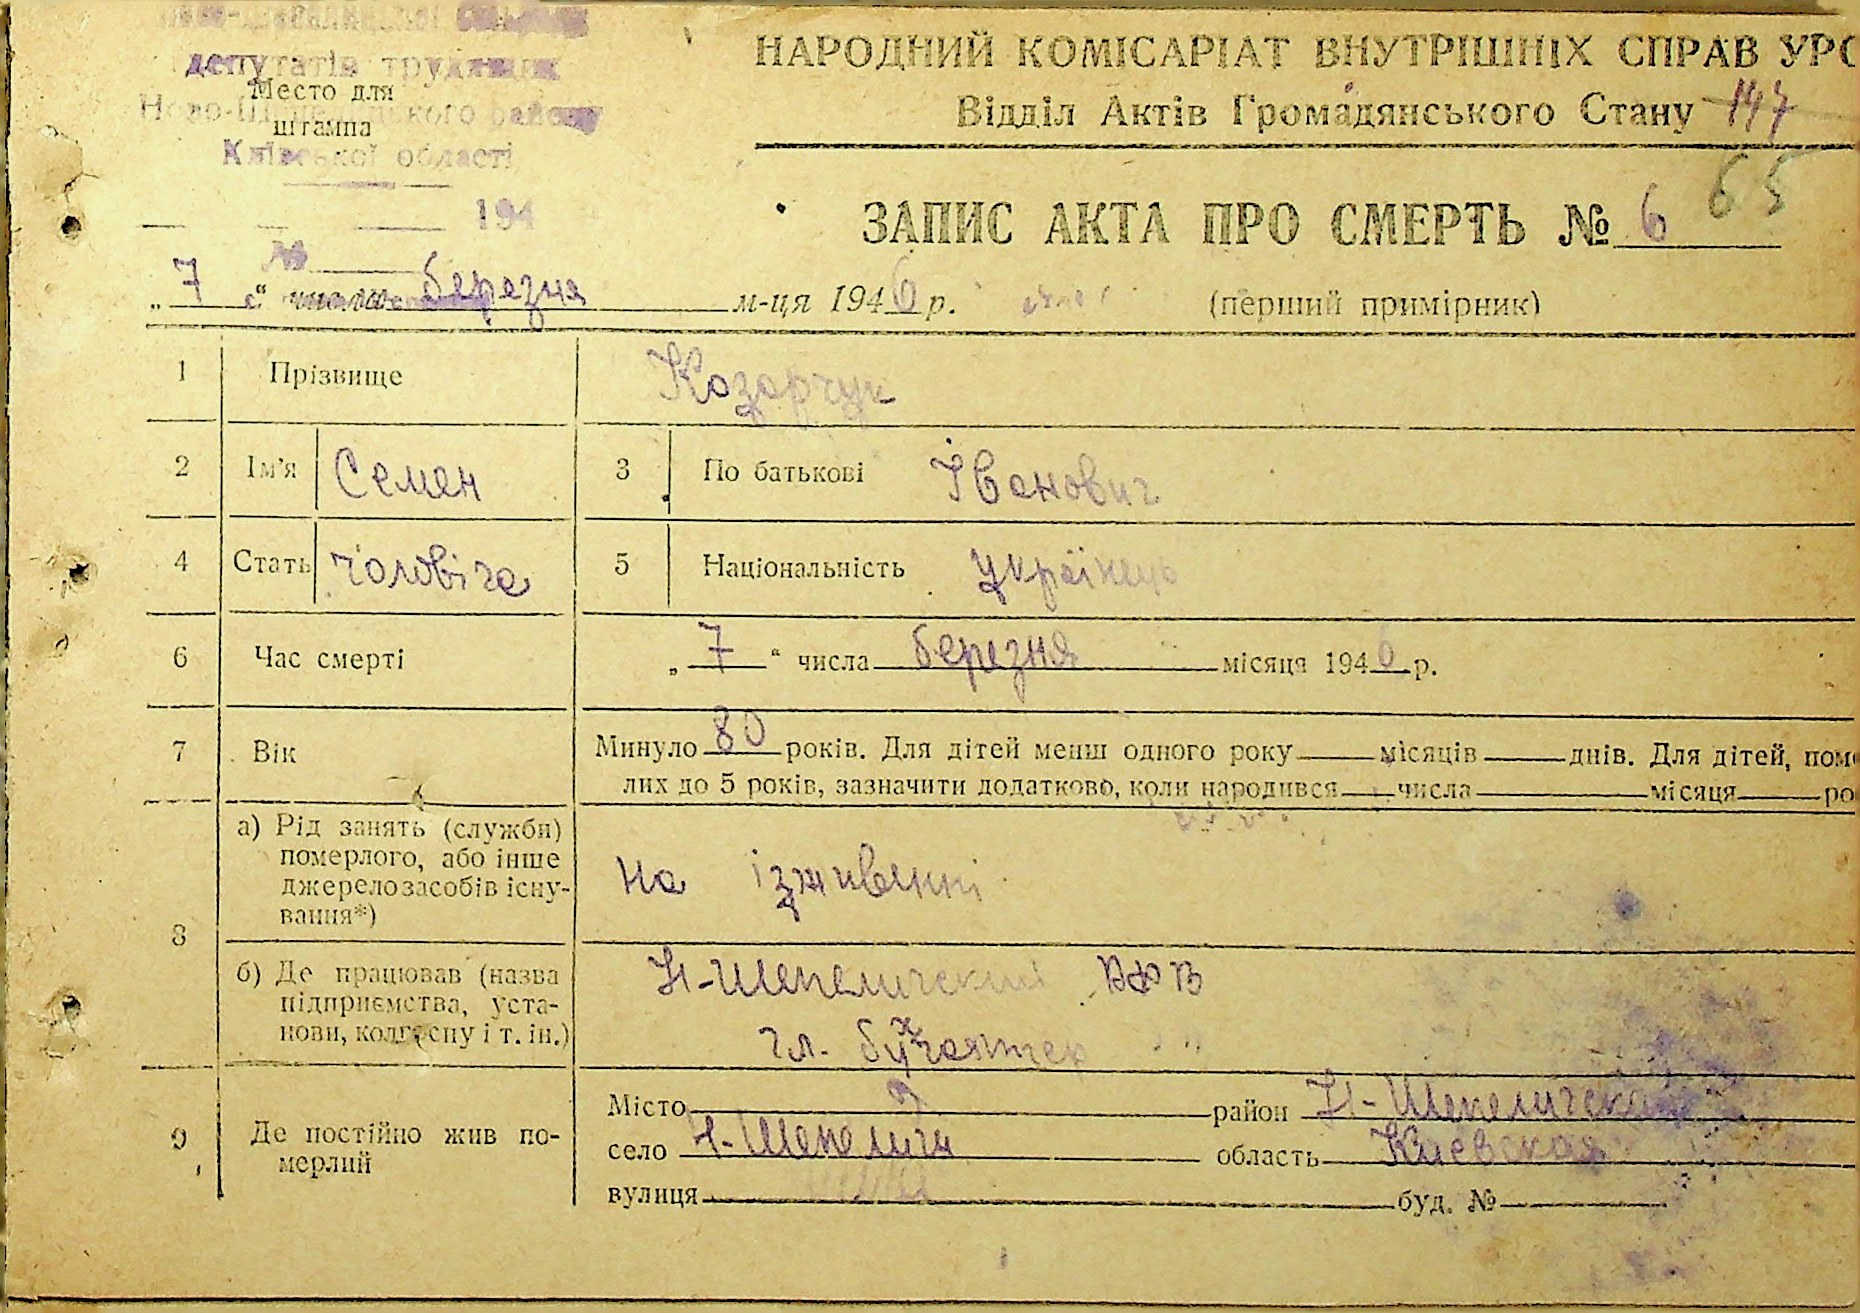 депутатів трудящих
Место для
штампа
Київської області
194
№
НАРОДНИЙ КОМІСАРІАТ ВНУТРІШНІХ СПРАВ УРС
Відділ Актів Громадянського Стану 147
65
ЗАПИС АКТА ПРО СМЕРТЬ № 6
„ 7 “ числа березня м-ця 1946 р. (перший примірник)
1 Прізвище Козарчук
2 Ім'я Семен 3 По батькові Іванович
4 Стать чоловіча 5 Національність українець
6 Час смерті „ 7 “ числа березня місяця 1946 р.
7 Вік Минуло 80 років. Для дітей менш одного року місяців днів. Для дітей, поме
лих до 5 років, зазначити додатково, коли народився числа місяця ро
8 а) Рід занять (служби)
померлого, або інше
джерело засобів існу-
вання*)
на іждивенні
б) Де працював (назва
підприємства, уста-
нови, колгоспу і т. ін.)
Н-Шепеличский
гл. бухгалтер
9 Де постійно жив по-
мерлий
Місто район Н-Шепеличска
село Н-Шепеличи область Киевская
вулиця буд. №